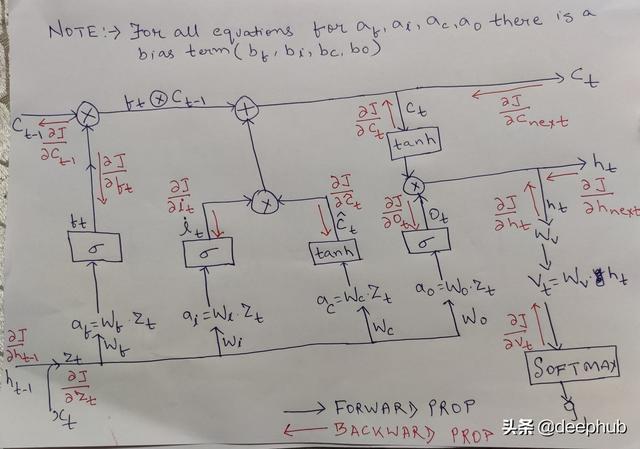 NOTE:→ For all equations for a_f, a_i, a_c, a_o there is a
bias term (b_f, b_i, b_c, b_o)
C_t-1
∂J/∂C_t-1
f_t ⊗ C_t-1
+
C_t
∂J/∂C_next
∂J/∂C_t
C_t
tanh
∂J/∂f_t
f_t
σ
∂J/∂i_t
i_t
σ
×
∂J/∂Ĉ_t
Ĉ_t
tanh
×
∂J/∂O_t
O_t
σ
h_t
∂J/∂h_next
∂J/∂h_t
h_t
W_v
V_t = W_v · h_t
a_f = W_f · Z_t
a_i = W_i · Z_t
a_c = W_c · Z_t
a_o = W_o · Z_t
W_f
W_i
W_c
W_o
∂J/∂h_t-1
h_t-1
Z_t
∂J/∂Z_t
x_t
∂J/∂V_t
SOFTMAX
ŷ
→ FORWARD PROP
← BACKWARD PROP
头条 @deephub